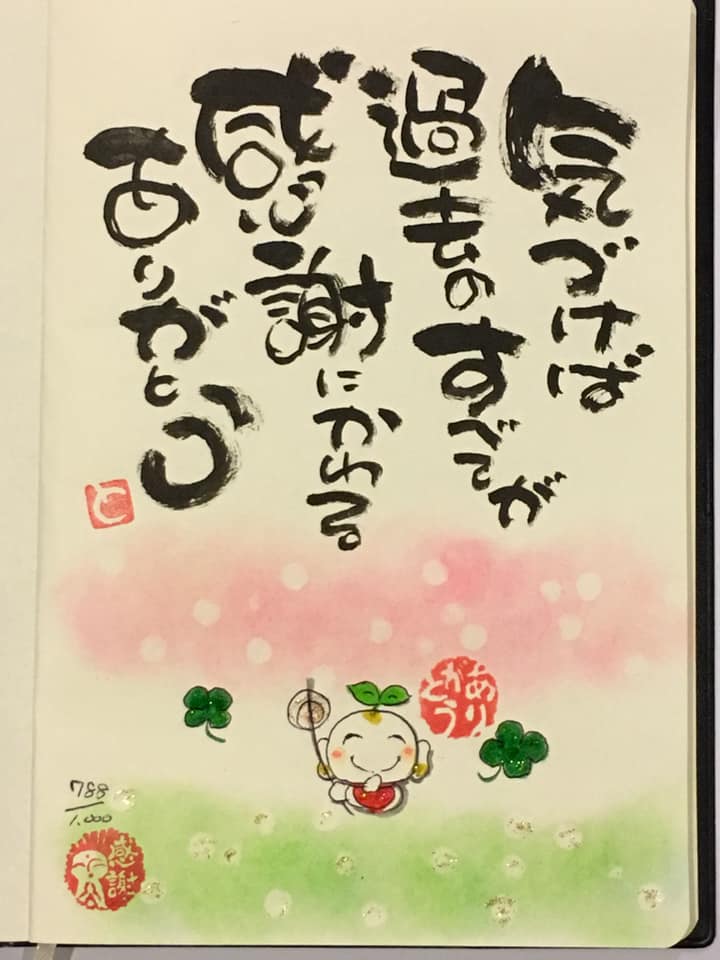 気づけば
過去のすべてが
感謝にかわる。
ありがとう
と
ありがとう
788/1,000
感謝